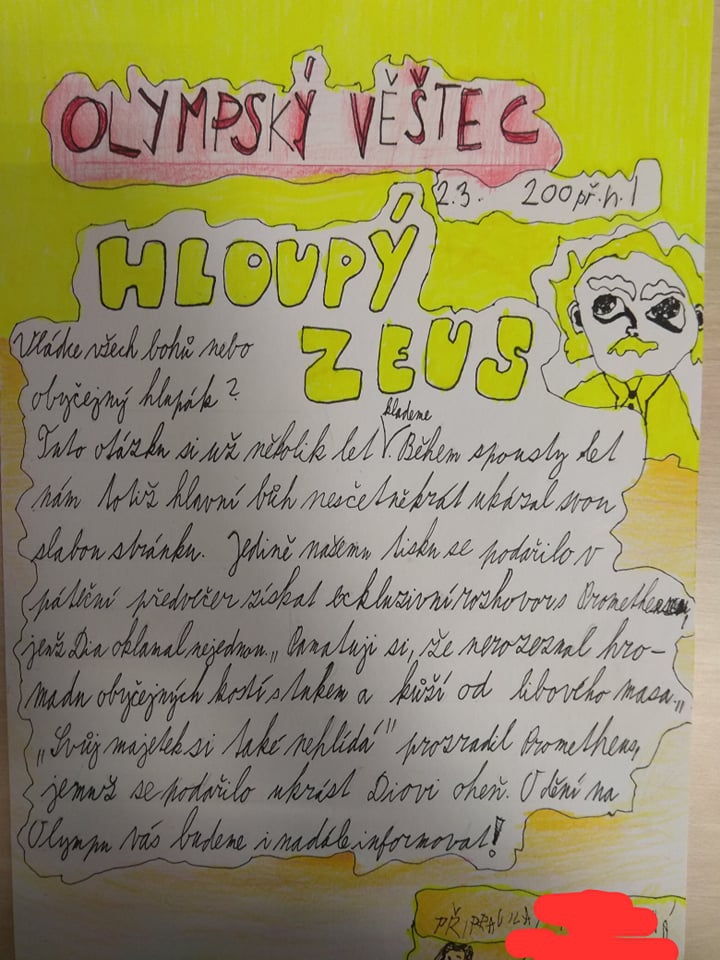 OLYMPSKÝ VĚŠTEC
2.3. 200 př. n. l
HLOUPÝ
ZEUS
Vládce všech bohů nebo
obyčejný hlupák?
Tuto otázku si už několik let klademe. Během spousty let
nám totiž hlavní bůh nesčetněkrát ukázal svou
slabou stránku. Jedině našemu tisku se podařilo v
páteční předvečer získat exkluzivní rozhovor s Prometheem,
jenž Dia oklamal nejednou. „Pamatuji si, že nerozeznal hro-
madu obyčejných kostí s tukem a kůží od libového masa.„
„Svůj majetek si také nehlídá" prozradil Prometheus,
jemuž se podařilo ukrást Diovi oheň. O dění na
Olympu vás budeme i nadále informovat!
PŘIPRAVILA